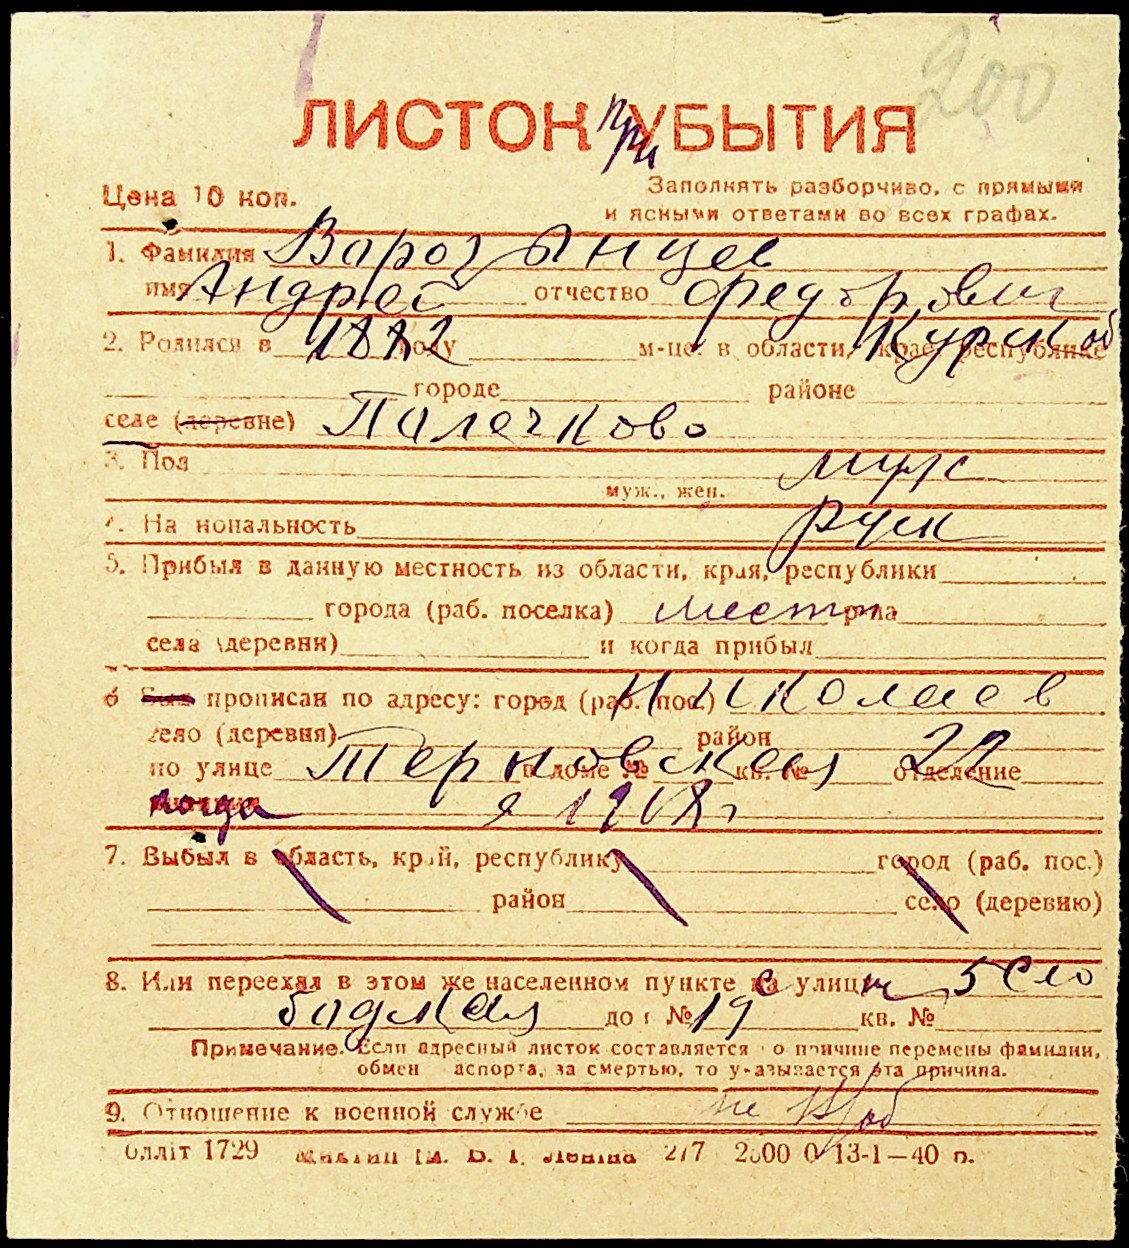 200
ЛИСТОК при УБЫТИЯ
Цена 10 коп.
Заполнять разборчиво, с прямыми
и ясными ответами во всех графах.
1. Фамилия Варозянцев
имя Андрей отчество Федорович
2. Родился в 1882 году м-це. в области, крае, республике Курской
городе районе
селе (деревне) Палечково
3. Пол муж
муж., жен.
4. На иональность руск
5. Прибыл в данную местность из области, края, республики
города (раб. поселка) мест
села (деревни) и когда прибыл
6 Был прописан по адресу: город (раб. пос.) Николаев
село (деревня) район
по улице Терновская в доме № кв. № 22 отделение
когда 1908 г
7. Выбыл в область, край, республику город (раб. пос.)
район село (деревню)
8. Или переехал в этом же населенном пункте с улицы 5 Сло
бодская до № 19 кв. №
Примечание. Если адресный листок составляется о причине перемены фамилии,
обмен аспорта, за смертью, то указывается эта причина.
9. Отношение к военной службе не
блліт 1729 Ленина 277 13-1—40 п.